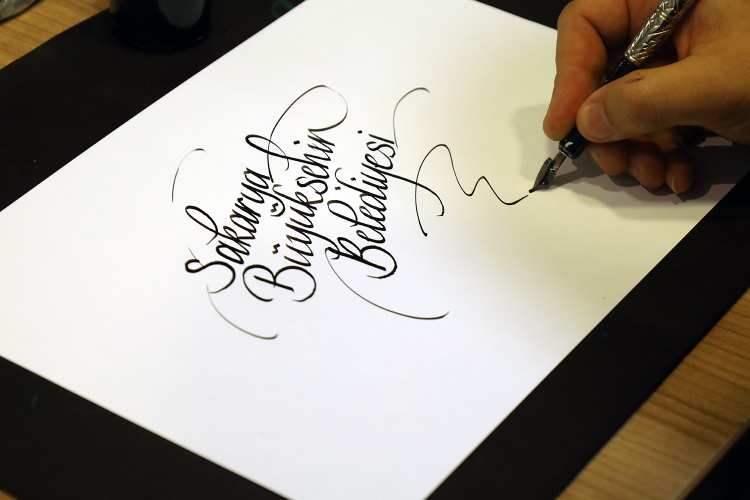 Sakarya
Büyükşehir
Belediyesi